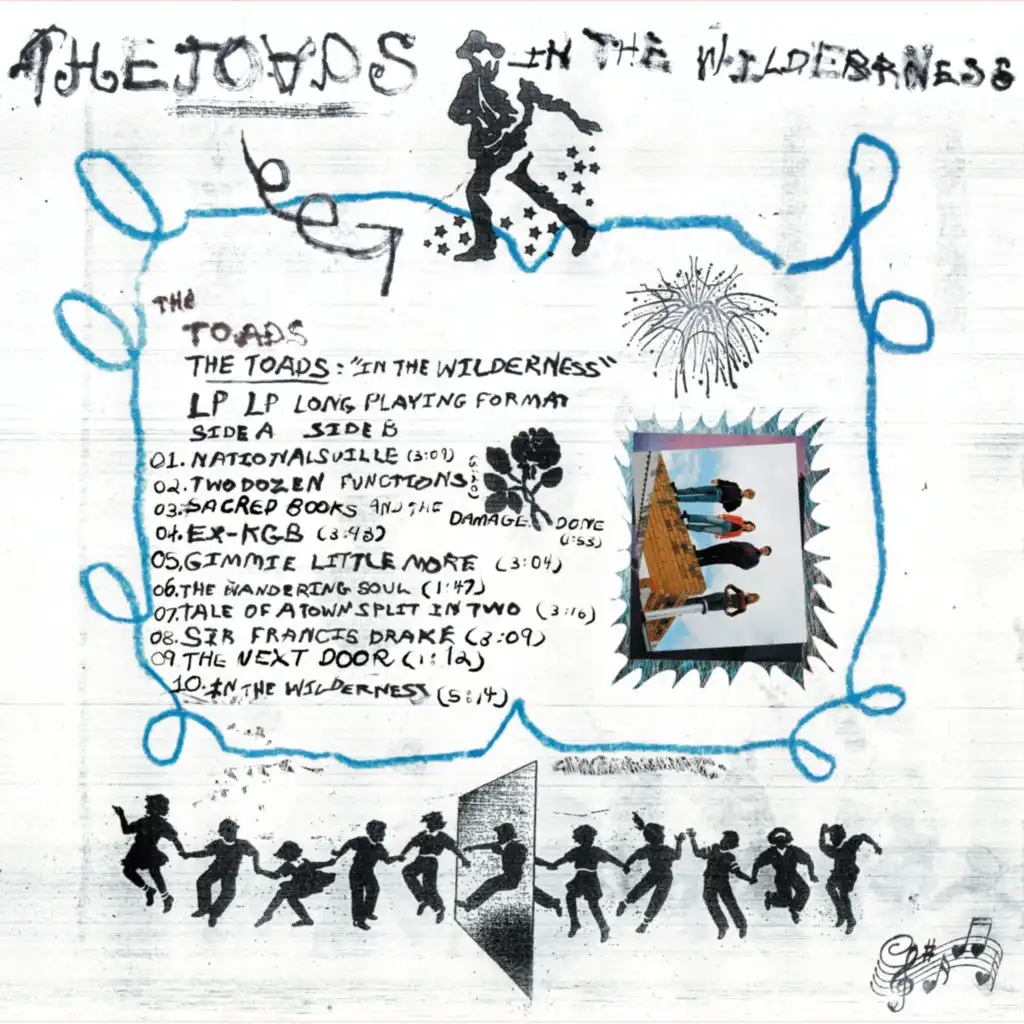 THE TOADS IN THE WILDERNESS
THE
TOADS
THE TOADS: "IN THE WILDERNESS"
LP LP LONG PLAYING FORMAT
SIDE A SIDE B
01. NATIONALSVILLE (3:09)
02. TWO DOZEN FUNCTIONS
03. SACRED BOOKS AND THE DAMAGE DONE (1:53)
04. EX-KGB (3:43)
05. GIMMIE LITTLE MORE (3:04)
06. THE WANDERING SOUL (1:47)
07. TALE OF A TOWN SPLIT IN TWO (3:16)
08. SIR FRANCIS DRAKE (3:09)
09. THE NEXT DOOR (1:12)
10. IN THE WILDERNESS (5:14)